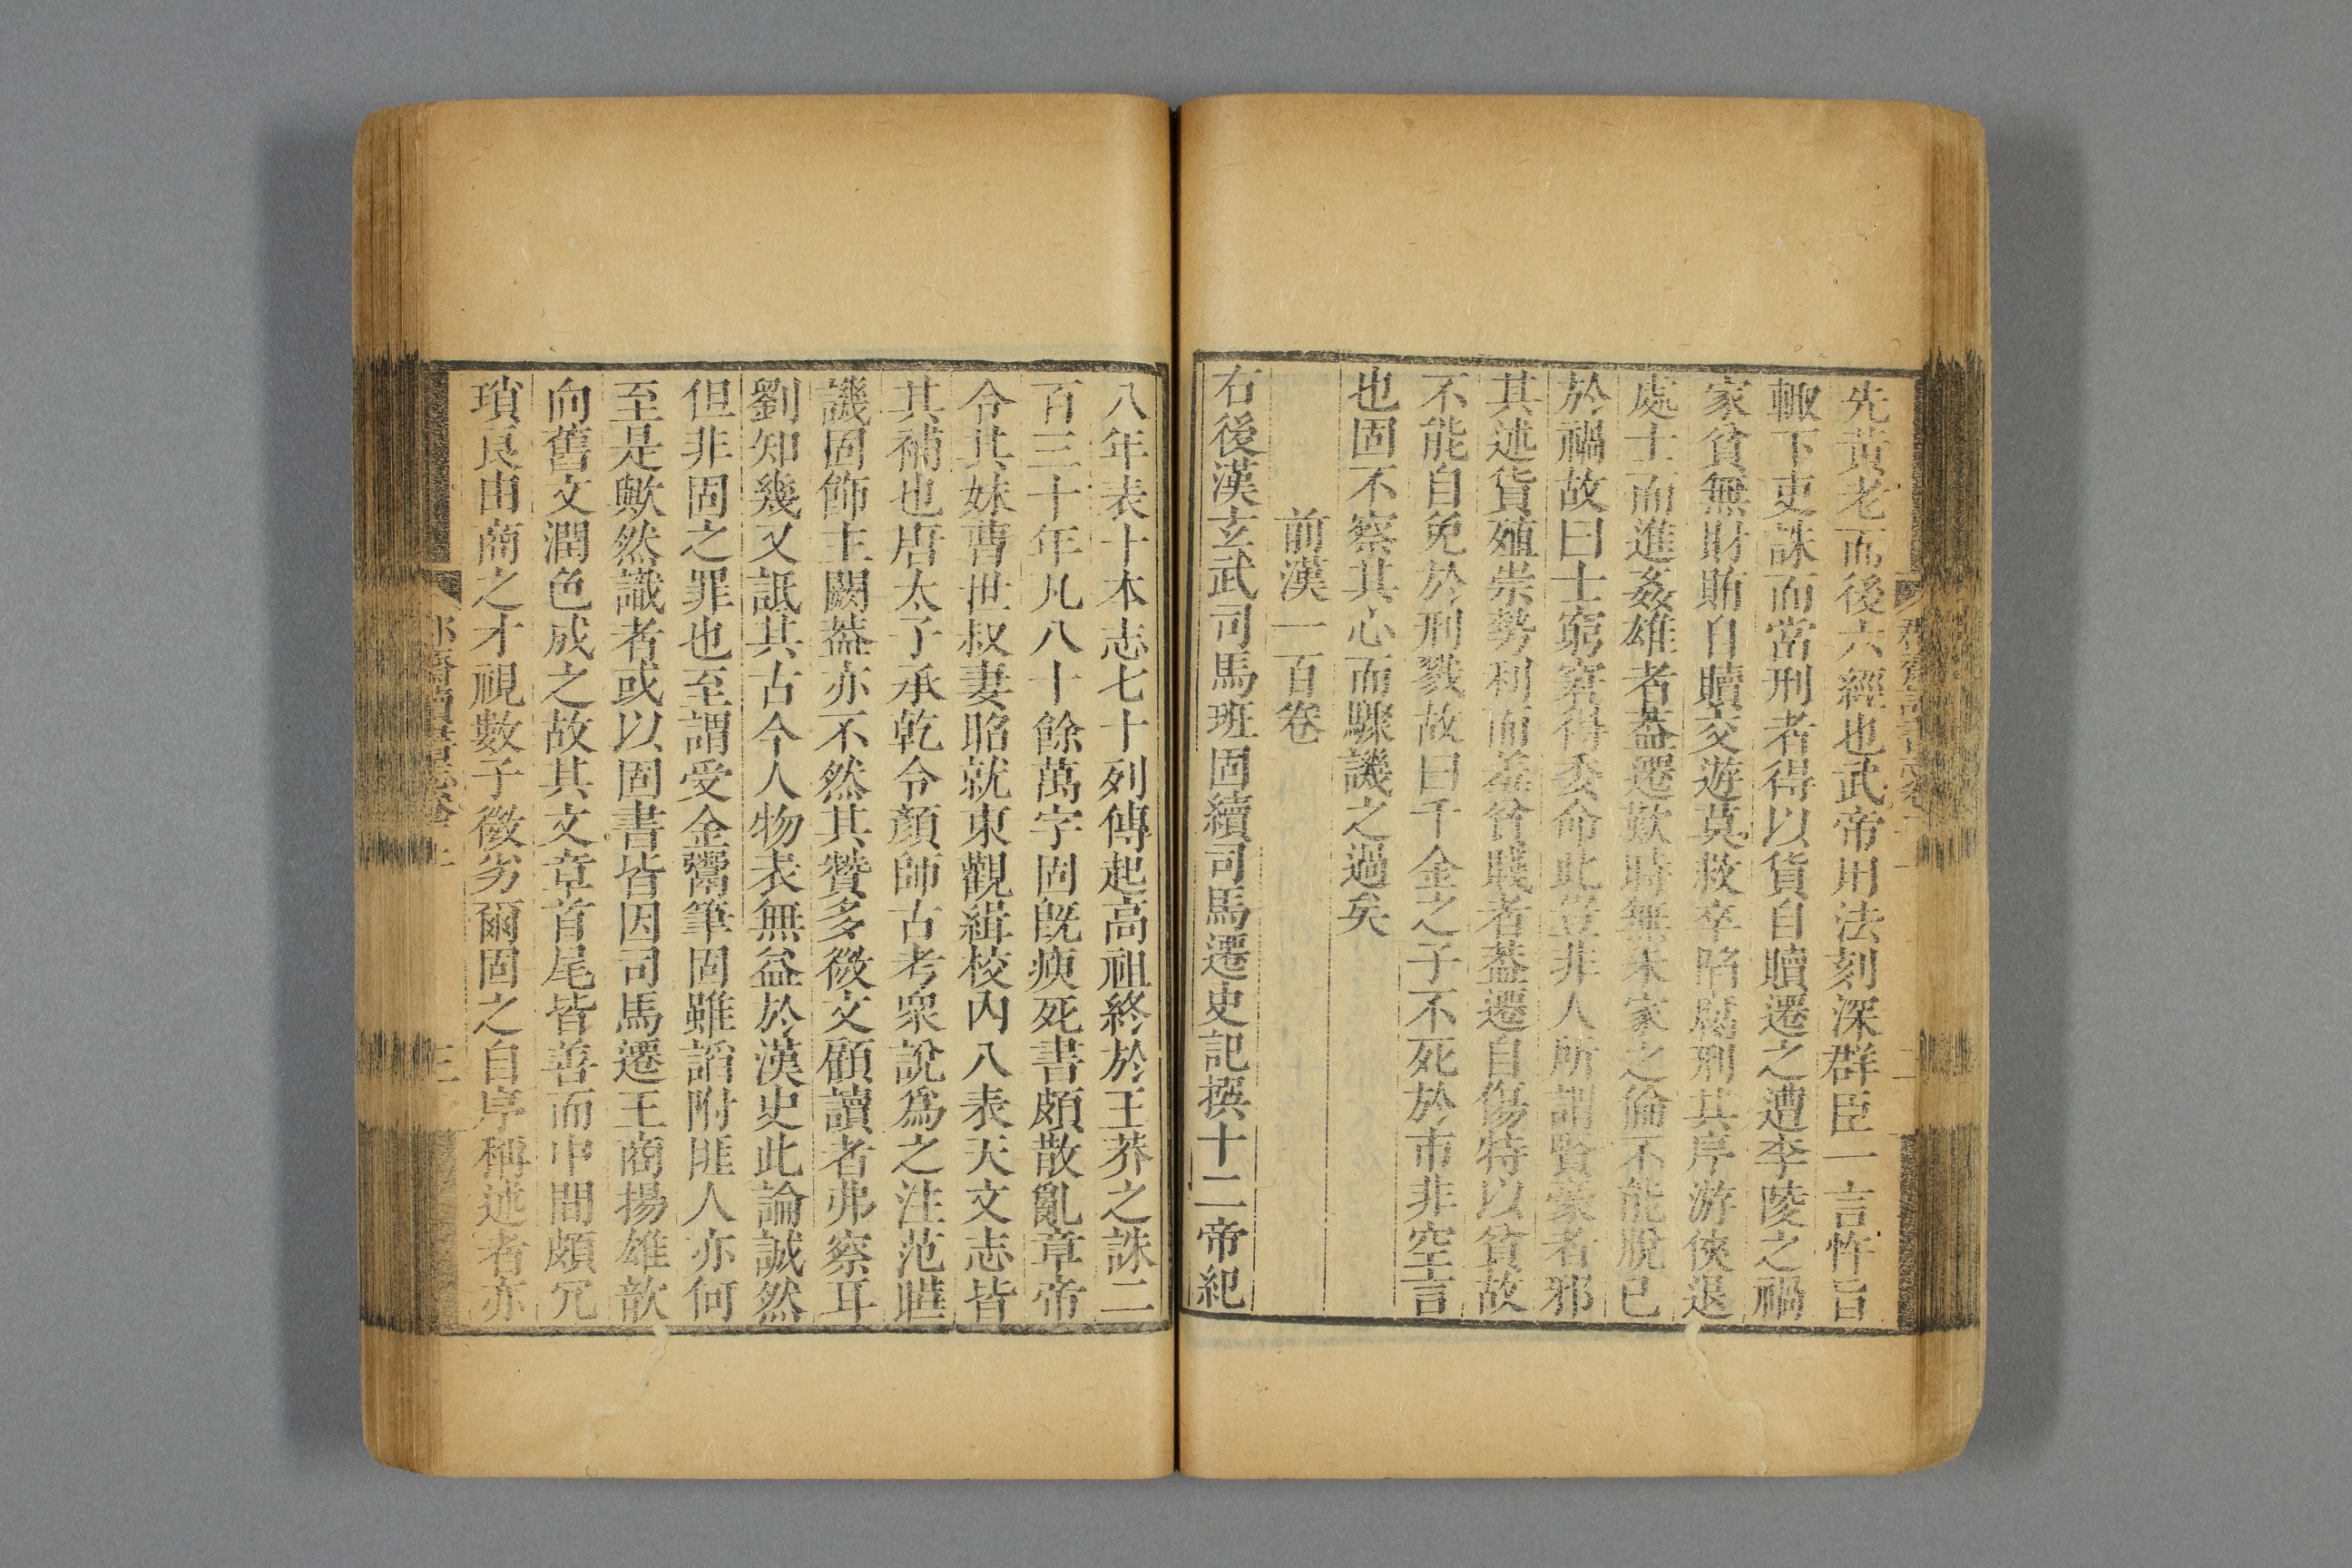 先黃老而後六經也武帝用法刻深群臣一言忤旨
輙下吏誅而當刑者得以貨自贖遷之遭李陵之禍
家貧無財賄自贖交遊莫救卒陷腐刑其序游俠退
處士而進姦雄者葢遷歎時無朱家之倫不能脫已
於禍故曰士窮窘得委命此豈非人所謂賢豪者邪
其述貨殖崇勢利而羞貧賤者葢遷自傷特以貧故
不能自免於刑戮故曰千金之子不死於市非空言
也固不察其心而驟譏之過矣
前漢一百卷
右後漢玄武司馬班固續司馬遷史記撰十二帝紀
八年表十本志七十列傳起高祖終於王莽之誅二
百三十年凡八十餘萬字固既瘐死書頗散亂章帝
令其妹曹世叔妻昭就東觀緝校內八表天文志皆
其補也唐太子承乾令顏師古考衆說爲之注范曄
譏固飾主闕葢亦不然其贊多微文顧讀者弗察耳
劉知幾又詆其古今人物表無益於漢史此論誠然
但非固之罪也至謂受金鬻筆固雖諂附匪人亦何
至是歟然識者或以固書皆因司馬遷王商揚雄歆
向舊文潤色成之故其文章首尾皆善而中間頗冗
瑣良由商之才視數子微劣爾固之自序稱述者亦